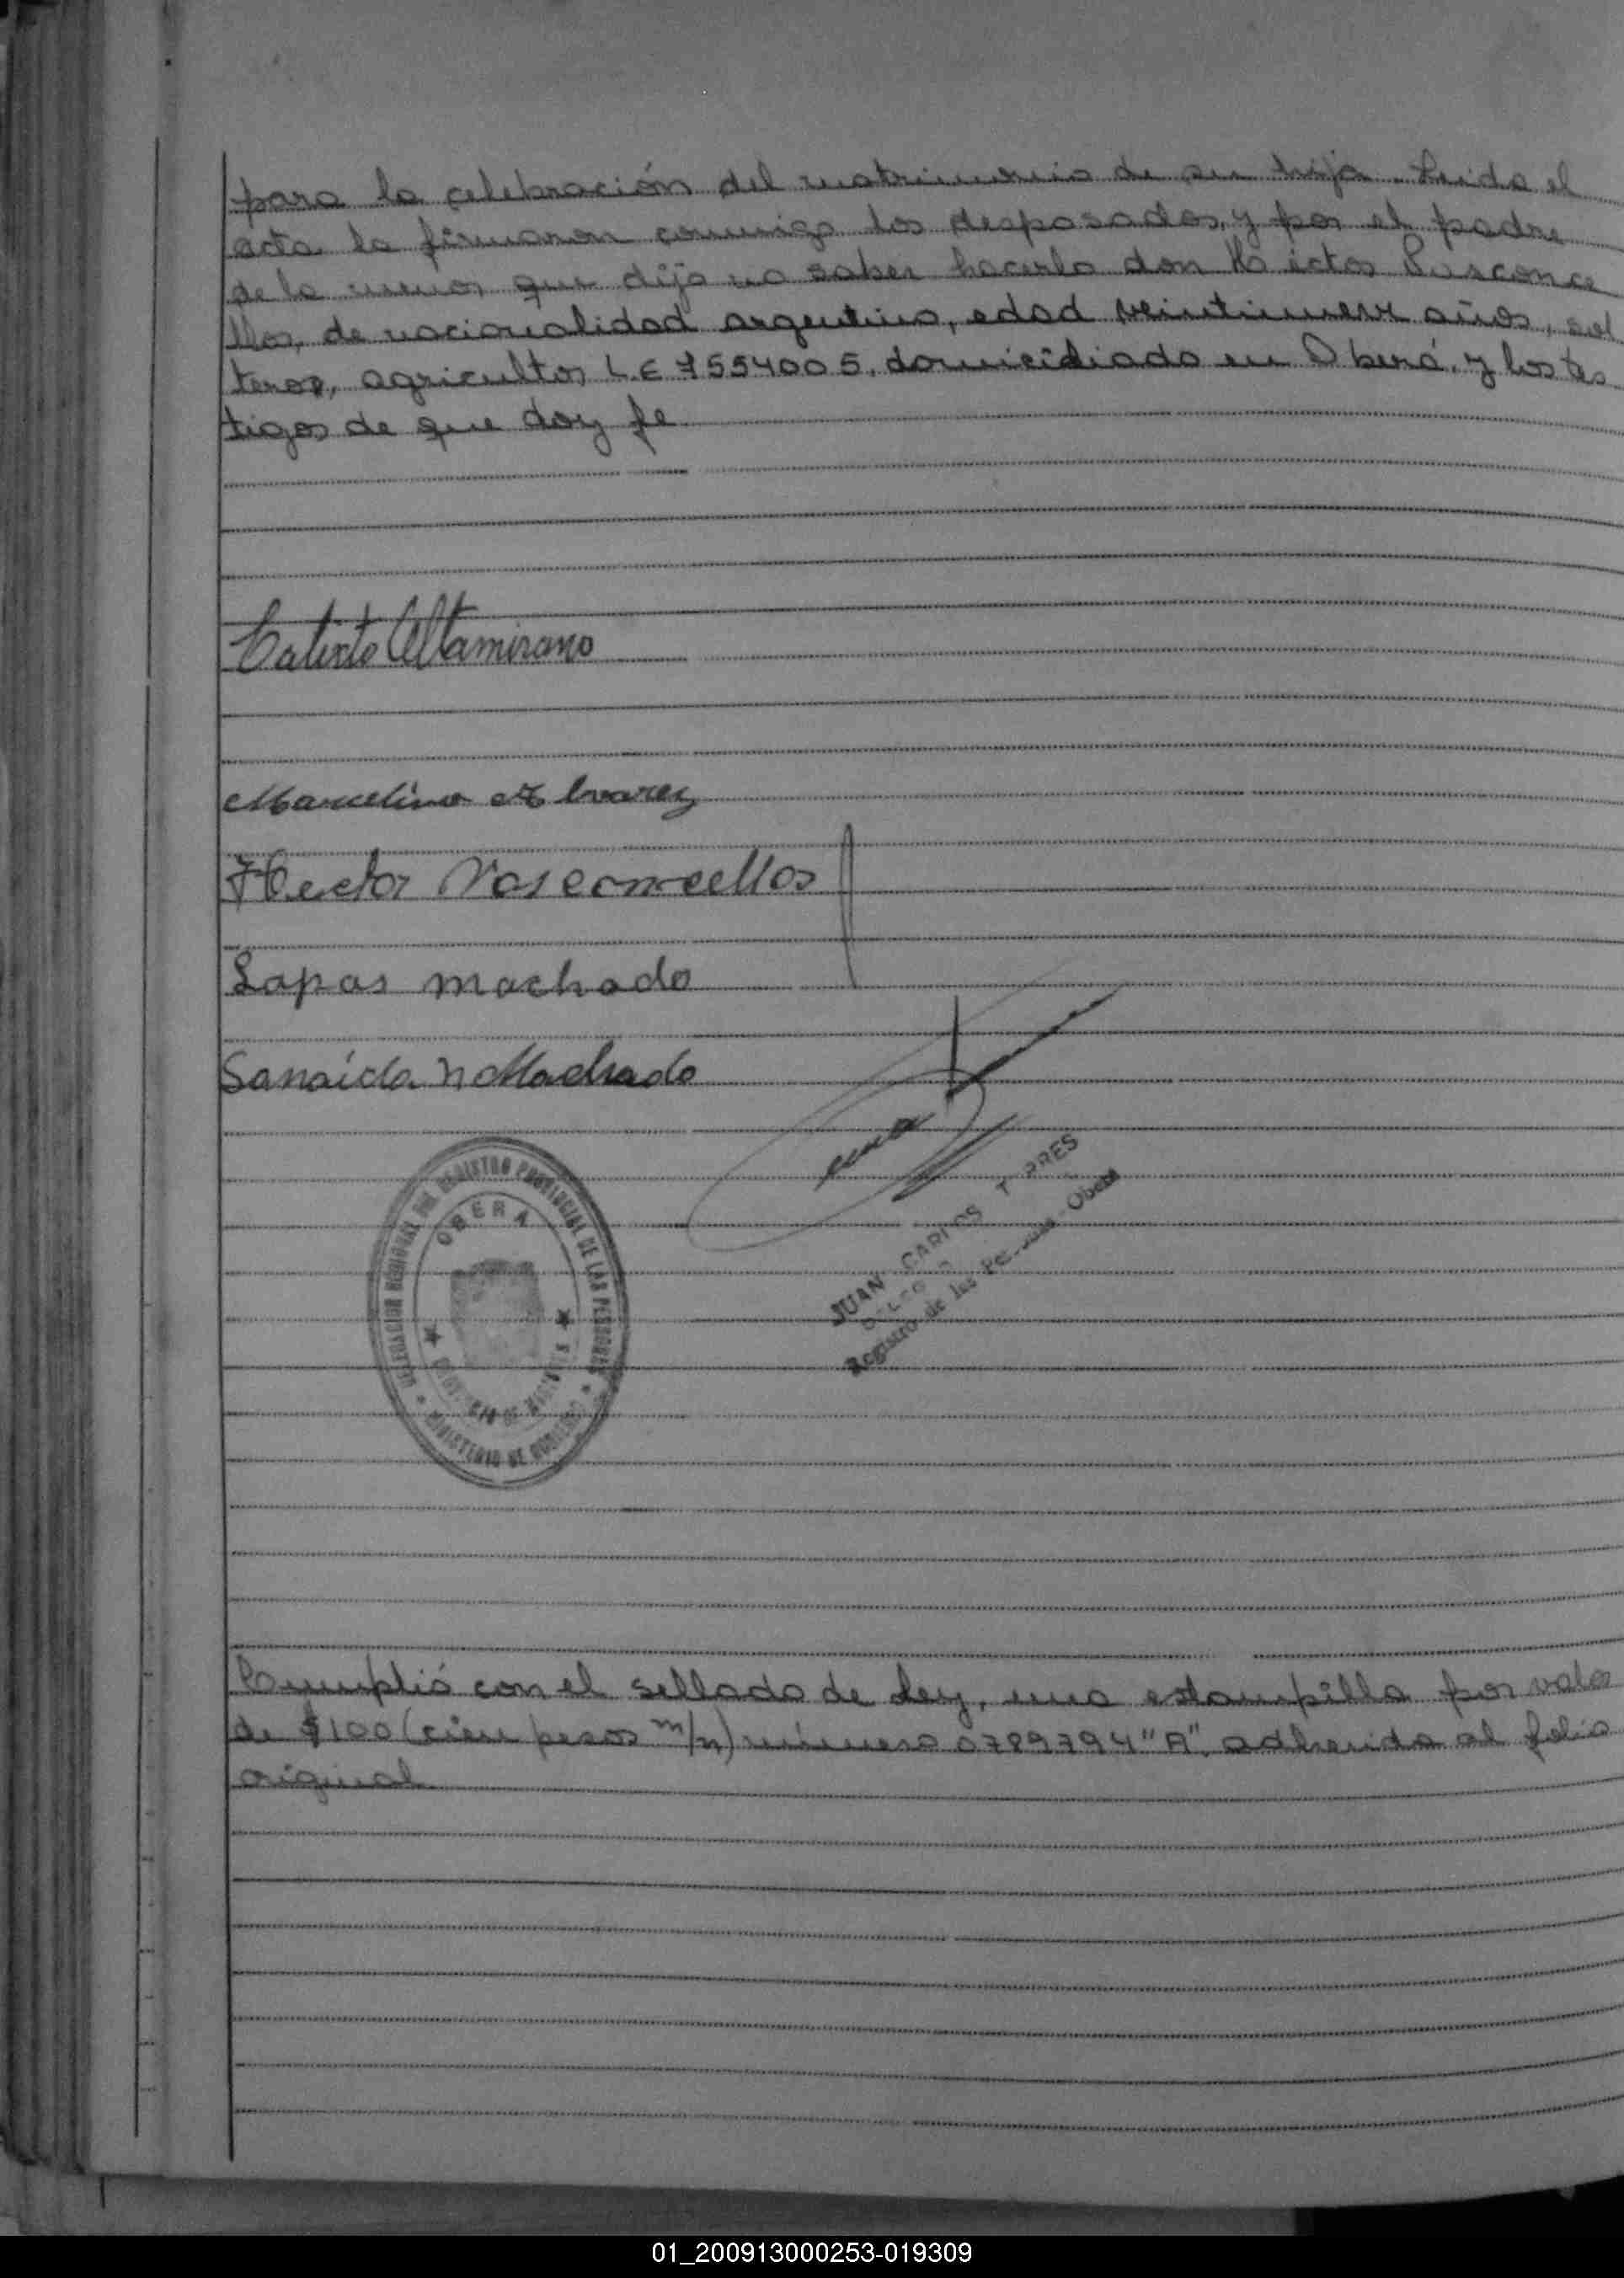 para la celebración del matrimonio de su hija. Leida el
acta la firmaron conmigo los desposados, y por el padre
de la menor que dijo no saber hacerlo don Héctor Vasconce
llos, de nacionalidad argentino, edad veintinueve años, sol
tero, agricultor L.E 7554005, domiciliado en Oberá, y los tes
tigos de que doy fe
Calixto Altamirano
Marcelino Alvarez
Hector Vasconcellos
Lapas machado
Sanaida n Machado
DELEGACION REGIONAL DEL REGISTRO PROVINCIAL DE LAS PERSONAS
OBERA
PROVINCIA DE MISIONES
MINISTERIO DE GOBIERNO
JUAN CARLOS TORRES
Registro de las Personas - Oberá
Cumplió con el sellado de ley, una estampilla por valor
de $100 (cien pesos m/n) número 0789794 "A", adherida al folio
original
01_200913000253-019309